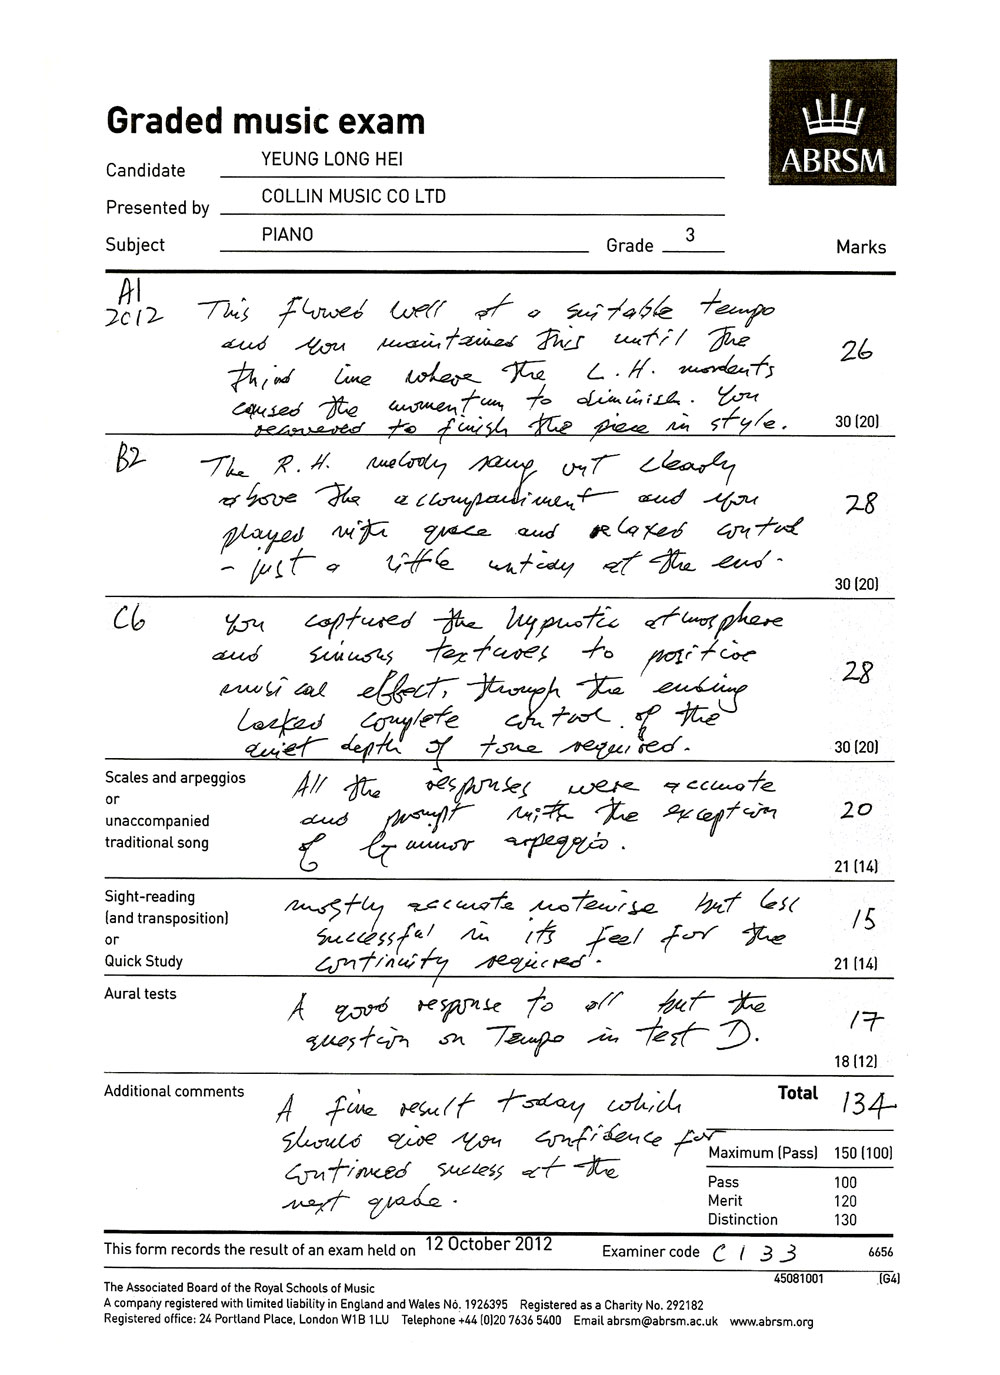 ABRSM
Graded music exam
Candidate YEUNG LONG HEI
Presented by COLLIN MUSIC CO LTD
Subject PIANO Grade 3 Marks
A1
2012
This flowed well at a suitable tempo
and you maintained this until the
third line where the L.H. mordents
caused the momentum to diminish. You
recovered to finish the piece in style.
26
30 (20)
B2
The R.H. melody sang out clearly
above the accompaniment and you
played with grace and relaxed control
- just a little untidy at the end.
28
30 (20)
C6
You captured the hypnotic atmosphere
and sinuous textures to positive
musical effect, though the ending
lacked complete control of the
quiet depth of tone required.
28
30 (20)
Scales and arpeggios
or
unaccompanied
traditional song
All the responses were accurate
and prompt with the exception
of G minor arpeggio.
20
21 (14)
Sight-reading
(and transposition)
or
Quick Study
Mostly accurate notewise but less
successful in its feel for the
continuity required.
15
21 (14)
Aural tests
A good response to all but the
question on Tempo in test D.
17
18 (12)
Additional comments
A fine result today which
should give you confidence for
continued success at the
next grade.
Total 134
Maximum (Pass) 150 (100)
Pass 100
Merit 120
Distinction 130
This form records the result of an exam held on 12 October 2012 Examiner code C133 6656
45081001 (G4)
The Associated Board of the Royal Schools of Music
A company registered with limited liability in England and Wales No. 1926395 Registered as a Charity No. 292182
Registered office: 24 Portland Place, London W1B 1LU Telephone +44 (0)20 7636 5400 Email abrsm@abrsm.ac.uk www.abrsm.org